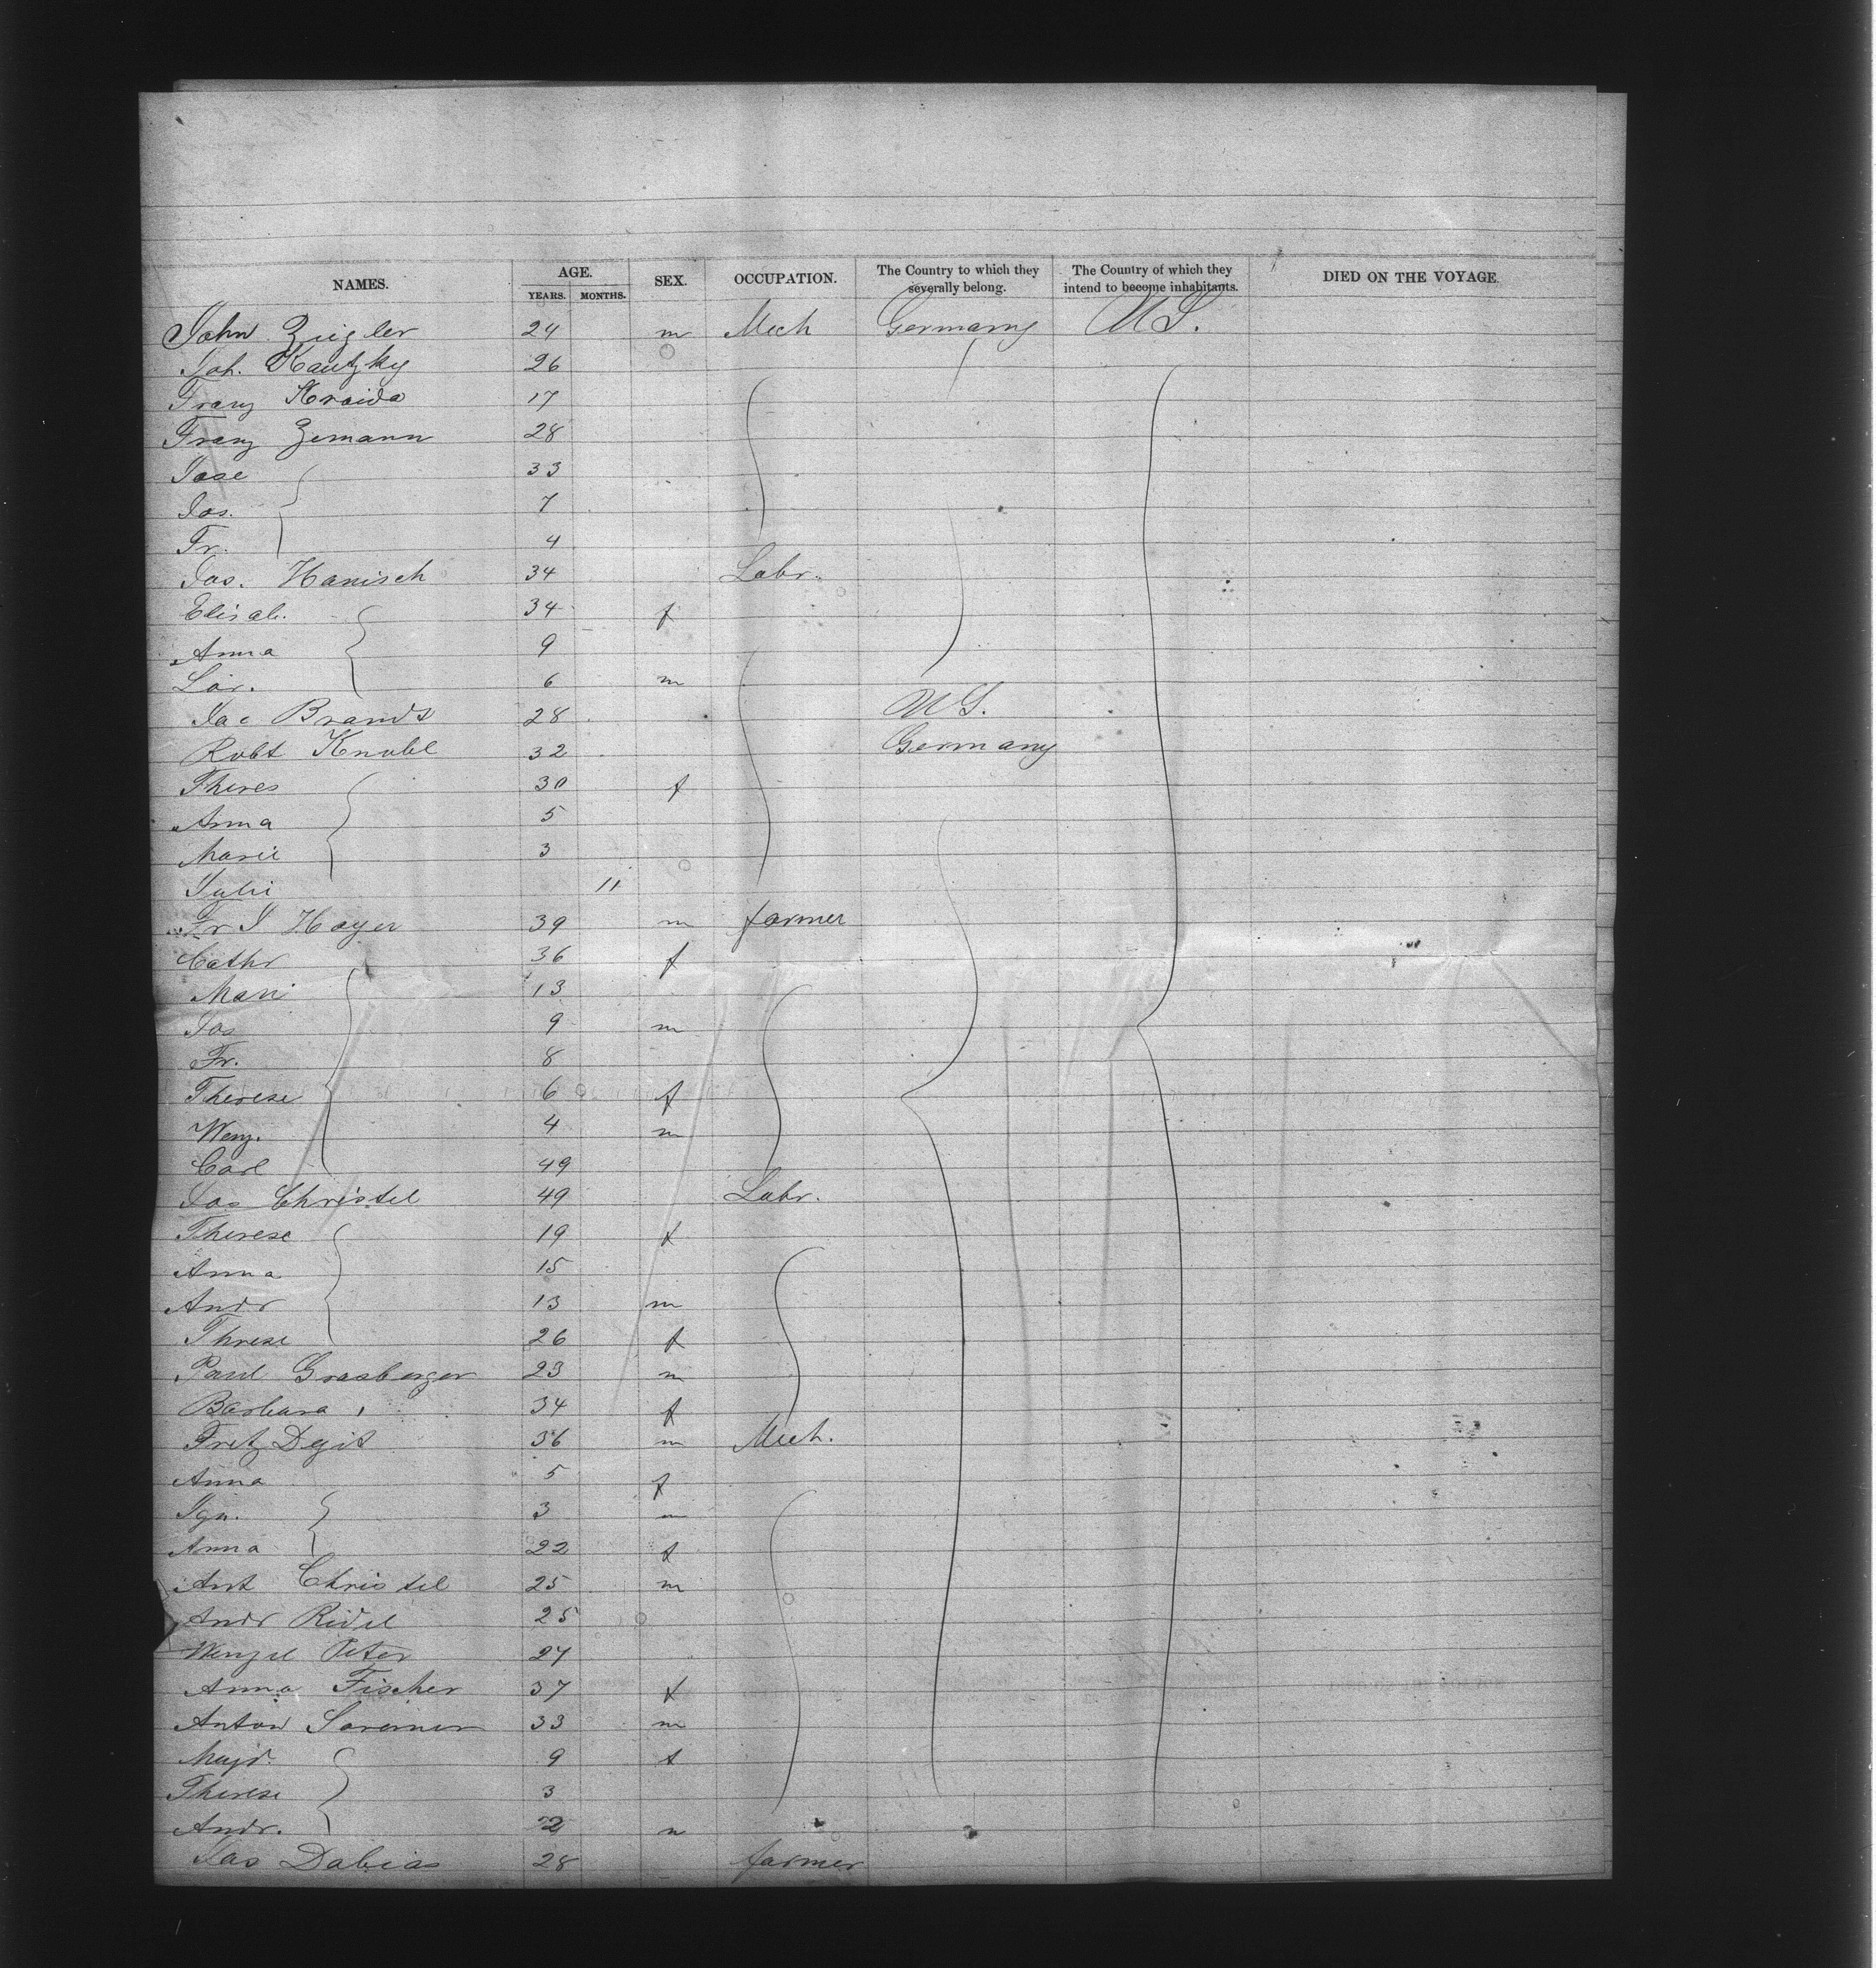 NAMES. AGE. YEARS. MONTHS. SEX. OCCUPATION. The Country to which they severally belong. The Country of which they intend to become inhabitants. DIED ON THE VOYAGE.
John Ziegler 24 m Mech Germany U S.
Joh. Kautzky 26
Franz Kraida 17
Franz Zemann 28
Jose 33
Jos. 7
Fr. 4
Jos. Hanisch 34 Labr.
Elisab. 34 f
Anna 9
6 m
Jac Brandt 28 U S.
Robt Knobl 32 Germany
Theres 30 f
Anna 5
Marie 3
Juli 11
Fr J Hayer 39 m farmer
Cathr 36 f
Mari 13
Jos 9 m
Fr. 8
Therese 6 f
Wenz. 4 m
Carl 49
Jos Christel 49 Labr.
Therese 19 f
Anna 15
Andr 13 m
Threse 26 f
Paul Grasberger 23 m
Barbara 34 f
Fritz 36 m Mech.
Anna 5 f
Ign. 3 m
Anna 22 f
Ant Christel 25 m
Andr Ridel 25
Wenzel Peter 27
Anna Fischer 37 f
Anton 33 m
9 f
Therese 3
Andr. 2 m
Jas Dabias 28 farmer